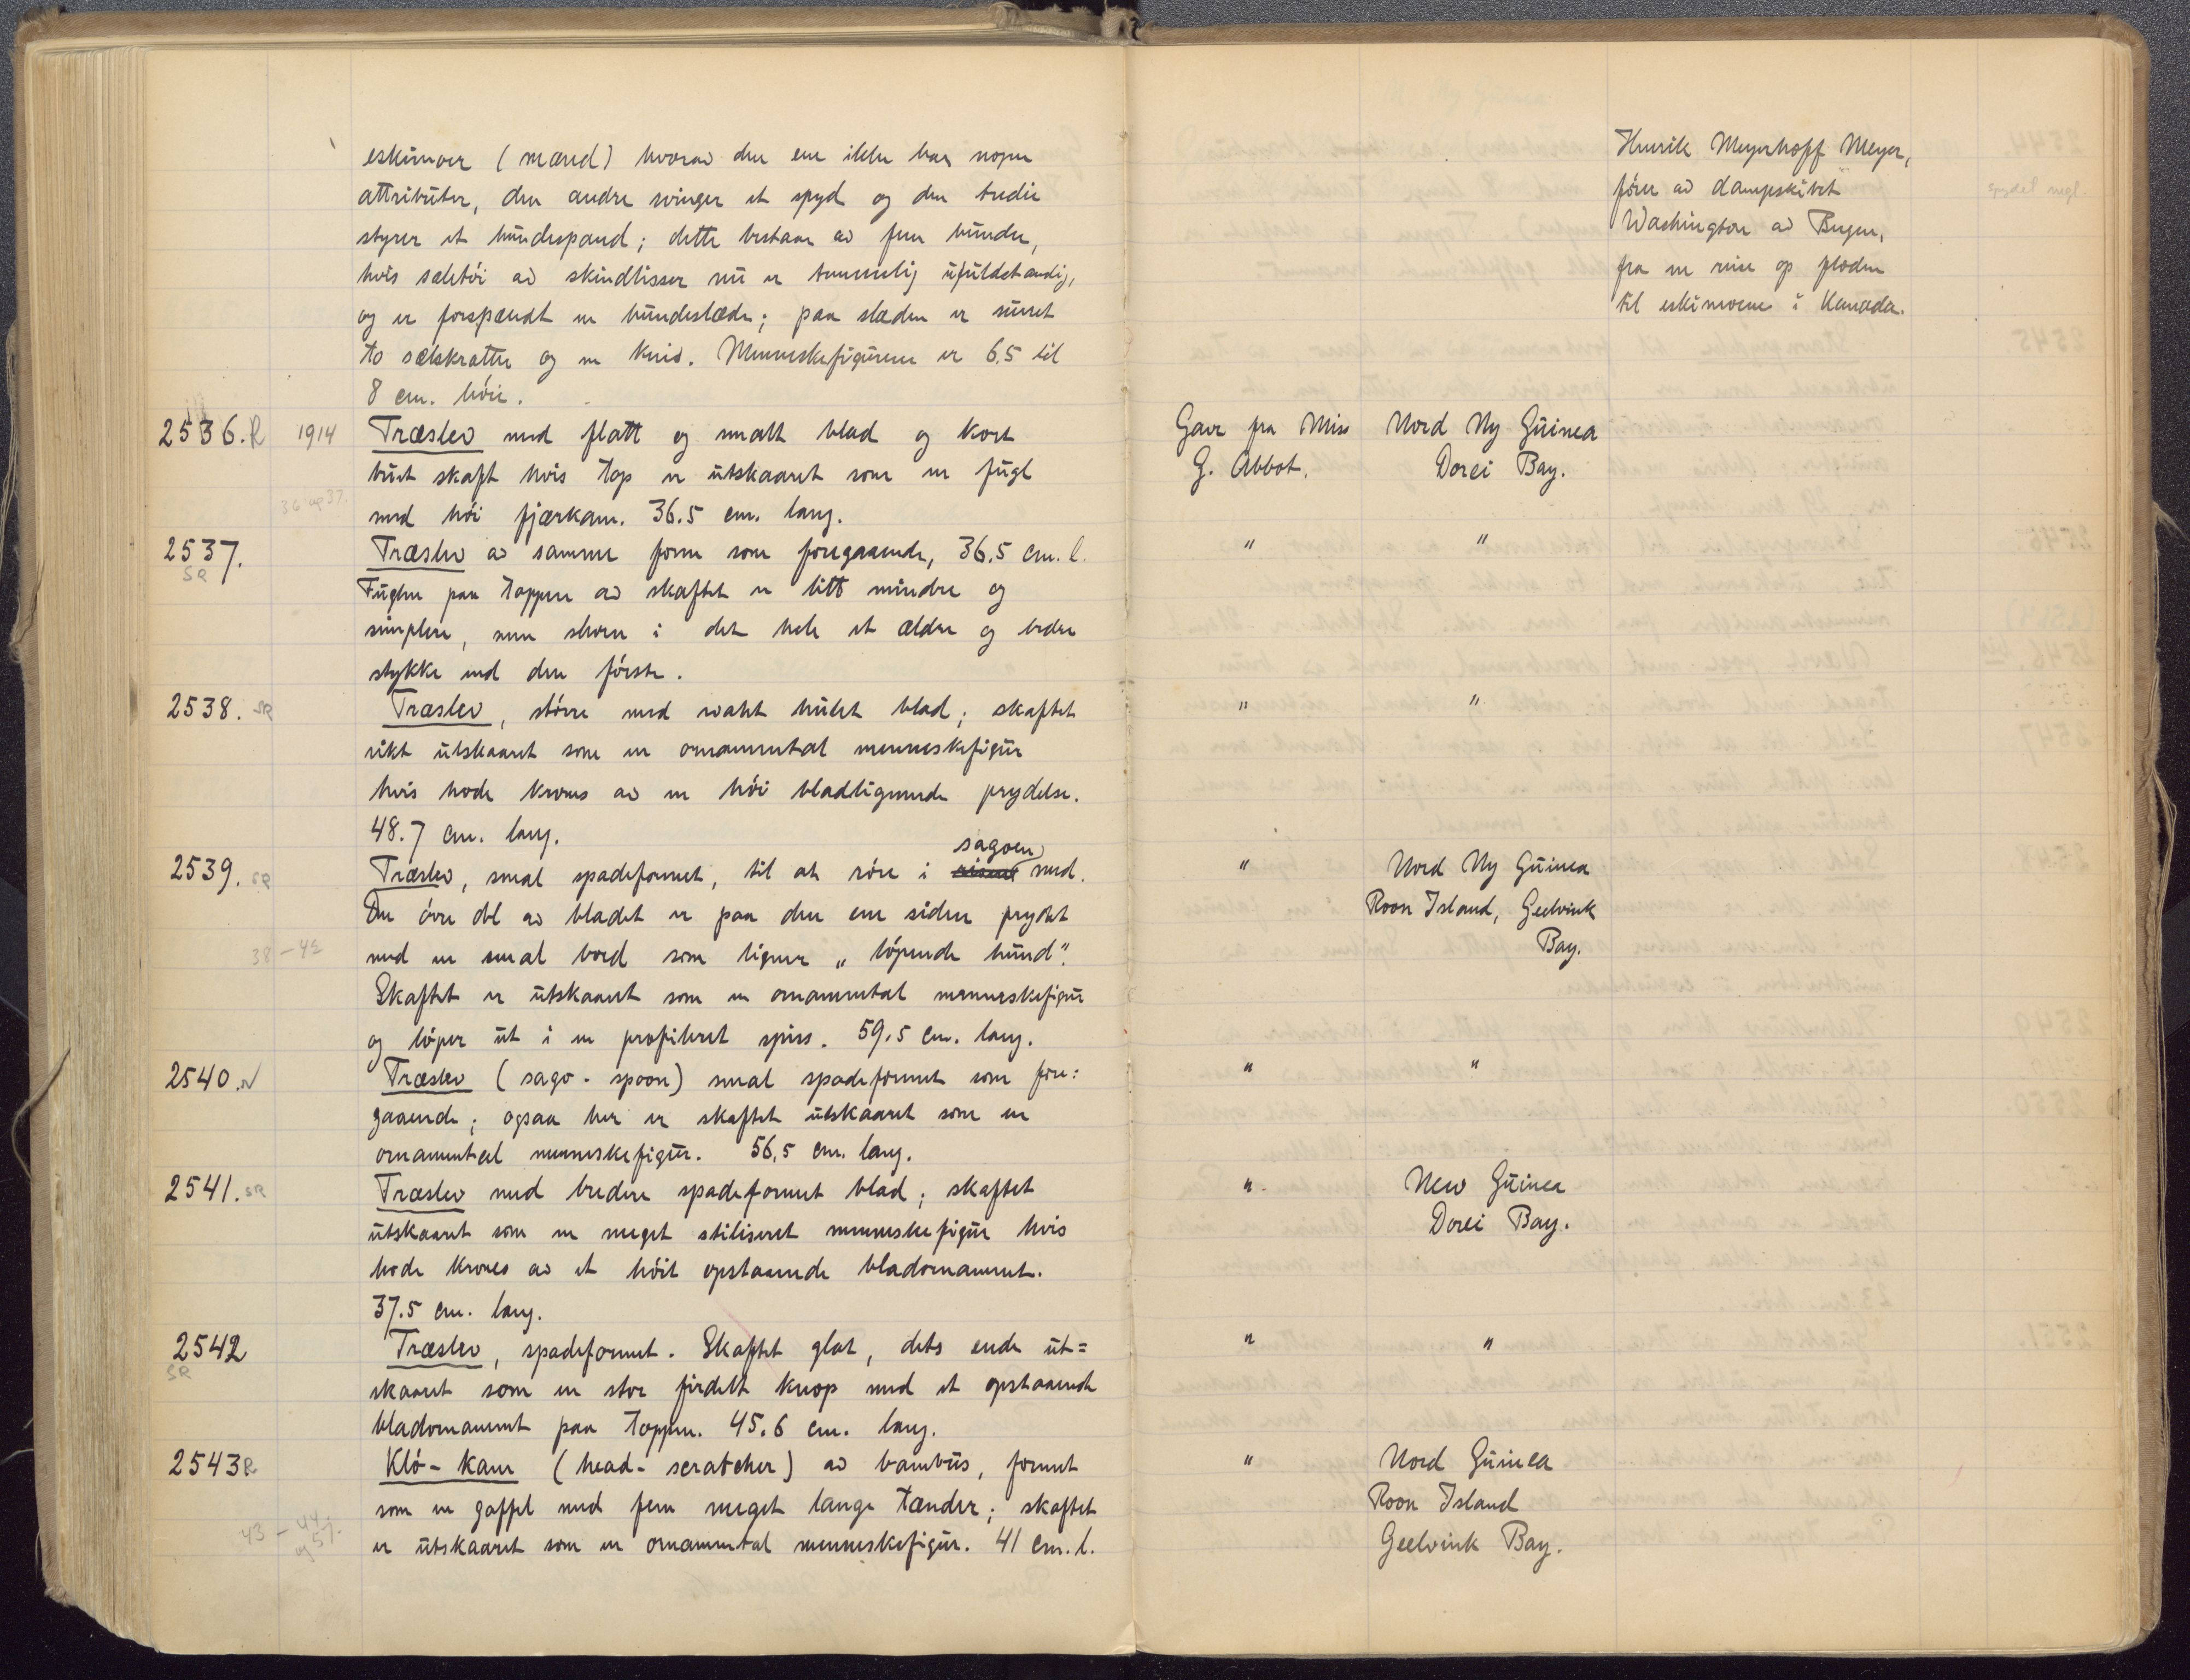 eskimoer (mænd) hvorav den ene ikke har nogen
attributer, den andre svinger et spyd og den tredie
styrer et hundespand; dette bestaar av fem hunde,
hvis seletöi av skindlisser nu er temmelig ufuldstændig,
og er forspændt en hundeslæde; paa slæden er surret
to sælskrotter og en kniv. Menneskefigurene er 6.5 til
8 cm. höie.
Henrik Meyerhoff Meyer,
förer av dampskibet
Washington av Bergen,
fra en reise op floden
til eskimoerne i Kanada.
spydet mgl.
2536. R 1914 Træslev med flatt og smalt blad og kort
buet skaft hvis top er utskaaret som en fugl
med höi fjærkam. 36.5 cm. lang.
Gave fra Miss
G. Abbot.
Nord Ny Guinea
Dorei Bay.
36 og 37.
2537. SR Træslev av samme form som foregaaende, 36.5 cm. l.
Fuglen paa toppen av skaftet er litt mindre og
simplere, men skeen i det hele et ældre og bedre
stykke end den förste.
" "
2538. SR Træslev, större med svakt hulet blad; skaftet
rikt utskaaret som en ornamental menneskefigur
hvis hode krones av en höi bladlignende prydelse.
48.7 cm. lang.
" "
2539. SR Træslev, smal spadeformet, til at röre i sagoen med.
Den övre del av bladet er paa den ene siden prydet
med en smal bord som ligner „löpende hund".
Skaftet er utskaaret som en ornamental menneskefigur
og löper ut i en profileret spiss. 59.5 cm. lang.
" Nord Ny Guinea
Roon Island, Geelvink
Bay.
38 – 42
2540. N Træslev (sago-spoon) smal spadeformet som fore:
gaaende; ogsaa her er skaftet utskaaret som en
ornamental menneskefigur. 56,5 cm. lang.
" "
2541. SR Træslev med bredere spadeformet blad; skaftet
utskaaret som en meget stiliseret menneskefigur hvis
hode krones av et höit opstaaende bladornament.
37.5 cm. lang.
" New Guinea
Dorei Bay.
2542 SR Træslev, spadeformet. Skaftet glat, dets ende ut=
skaaret som en stor firdelt knop med et opstaaende
bladornament paa toppen. 45.6 cm. lang.
" "
2543 R Klö-kam (head-scratcher) av bambus, formet
som en gaffel med fem meget lange tænder; skaftet
er utskaaret som en ornamental menneskefigur. 41 cm. l.
" Nord Guinea
Roon Island
Geelvink Bay.
43 – 44
og 57.